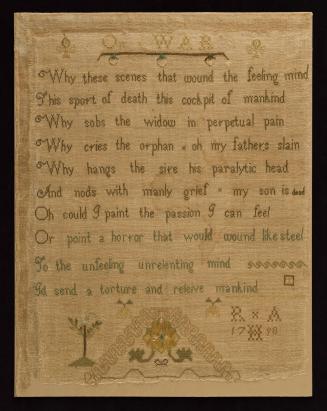 On WAR
Why these scenes that wound the feeling mind
This sport of death this cockpit of mankind
Why sobs the widow in perpetual pain
Why cries the orphan × oh my fathers slain
Why hangs the sire his paralytic head
And nods with manly grief × my son is dead
Oh could I paint the passion I can feel
Or point a horror that would wound like steel
To the unfeeling unrelenting mind
Id send a torture and releive mankind
R × A
17 98